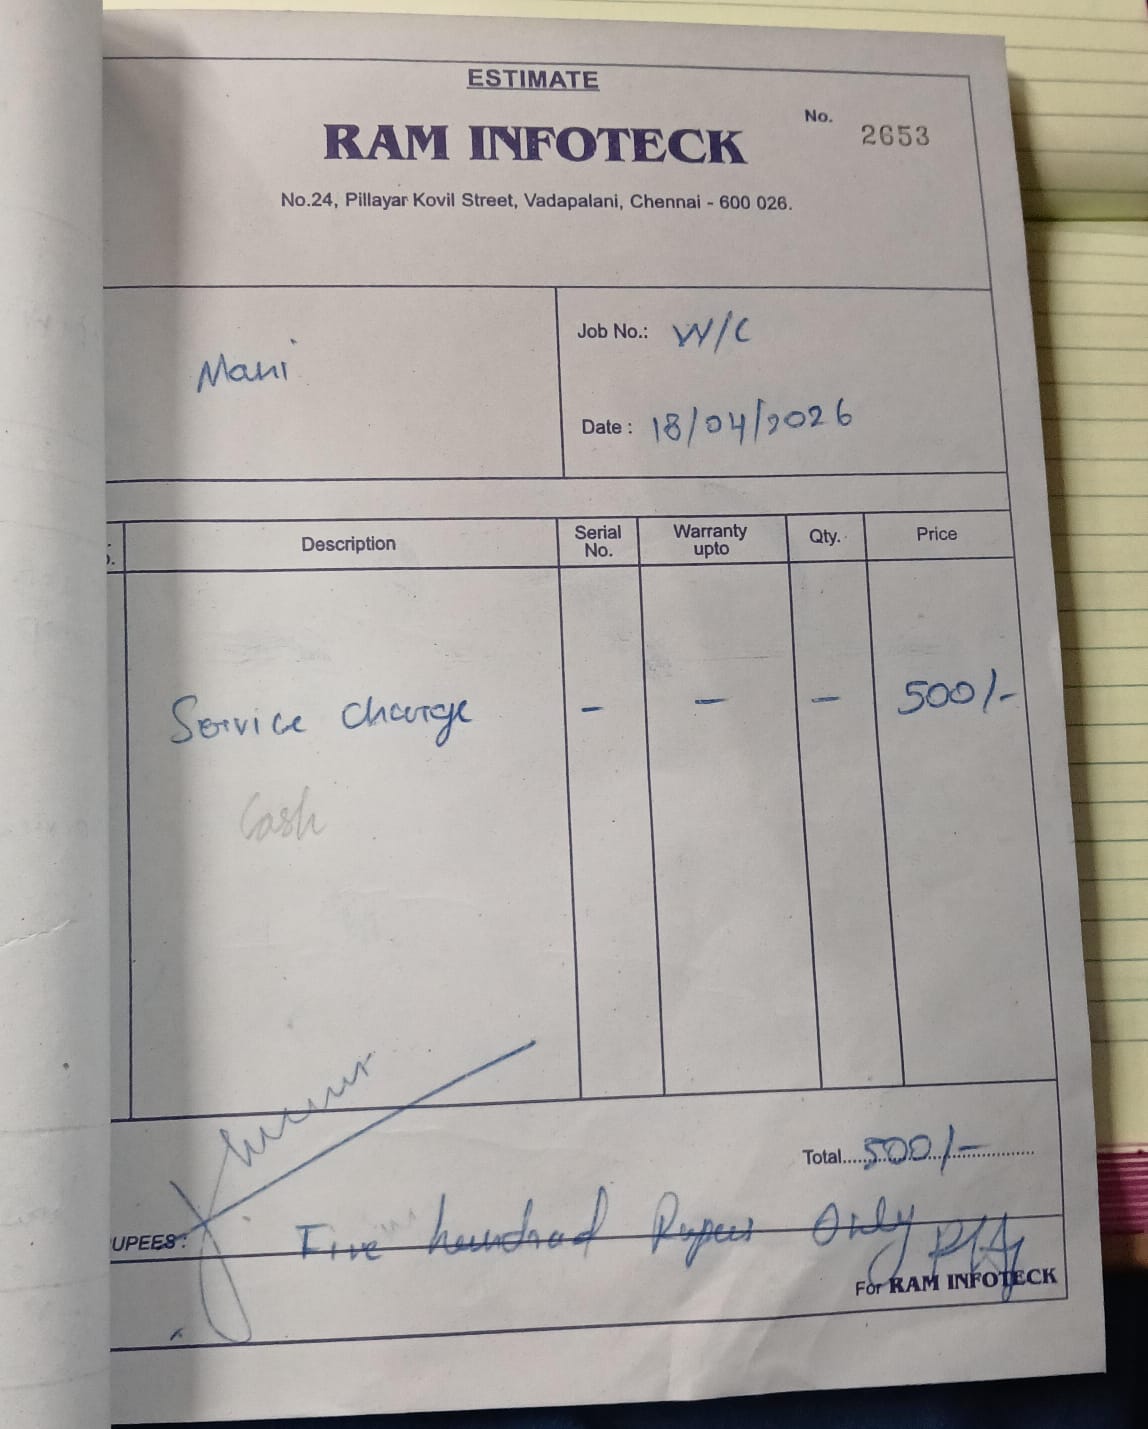 ESTIMATE
RAM INFOTECK
No. 2653
No.24, Pillayar Kovil Street, Vadapalani, Chennai - 600 026.
Mani
Job No.: W/C
Date : 18/04/2026
Description Serial No. Warranty upto Qty. Price
Service charge - - - 500/-
Cash
Total.....500/-
UPEES : Five hundred Rupees Only
For RAM INFOTECK